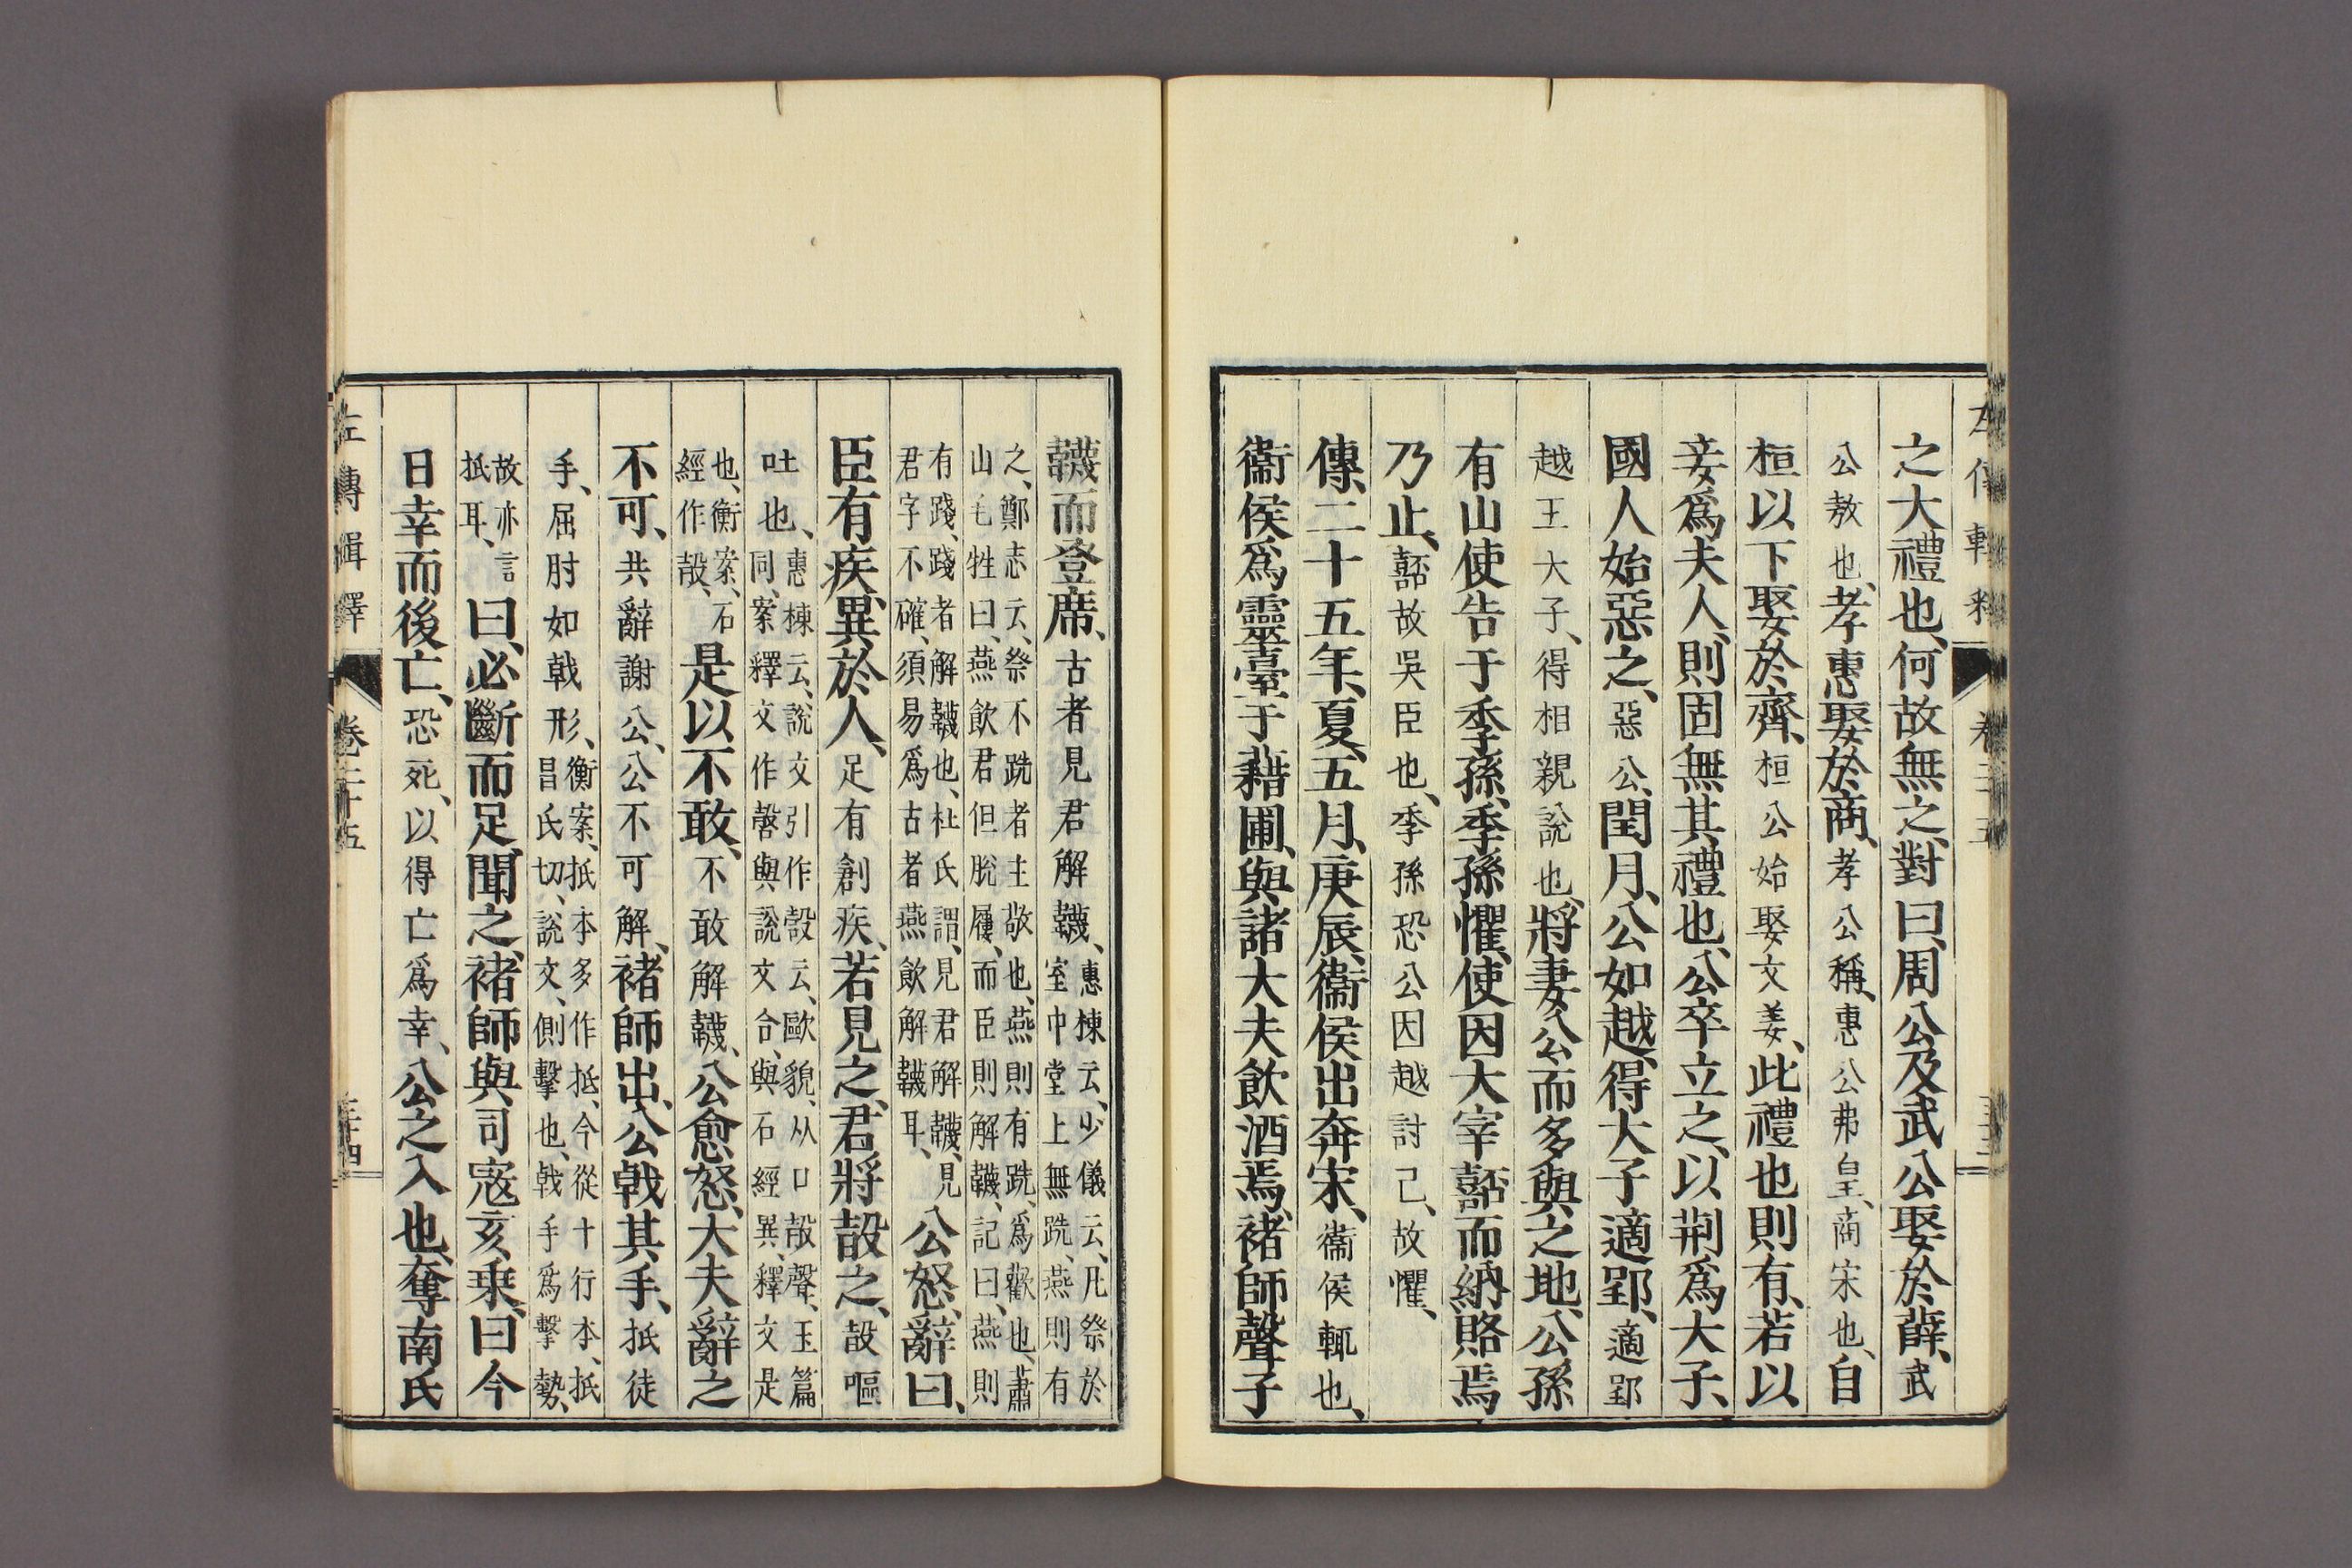 左傳輯釋 卷二十五
之大禮也、何故無之、對曰、周公及武公娶於薛、武
公敖也、孝惠娶於商、孝公稱、惠公弗皇、商宋也、自
桓以下娶於齊、桓公始娶文姜、此禮也則有、若以
妾爲夫人、則固無其禮也、公卒立之、以荆爲大子、
國人始惡之、惡公、閏月、公如越、得大子適郢、適郢
越王大子、得相親說也、將妻公而多與之地、公孫
有山使告于季孫、季孫懼、使因大宰嚭而納賂焉
乃止、嚭故吳臣也、季孫恐公因越討己、故懼、
傳、二十五年、夏、五月、庚辰、衞侯出奔宋、衞侯輒也、
衞侯爲靈臺于藉圃、與諸大夫飲酒焉、褚師聲子
韤而登席、古者見君解韤、惠棟云、少儀云、凡祭於
室中堂上無跣、燕則有
之、鄭志云、祭不跣者主敬也、燕則有跣、爲歡也、蕭
山毛甡曰、燕飲君但脫屨、而臣則解韤、記曰、燕則
有踐、踐者解韤也、杜氏謂、見君解韤、見
君字不確、須易爲古者燕飲解韤耳、公怒、辭曰、
臣有疾、異於人、足有創疾、若見之、君將㱿之、㱿嘔
吐也、惠棟云、說文引作㱿云、歐貌、从口㱿聲、玉篇
同、案釋文作㱿與說文合、與石經異、釋文是
也、衡案、石
經作㱿、是以不敢、不敢解韤、公愈怒、大夫辭之
不可、共辭謝公、公不可解、褚師出、公戟其手、抵徒
手、屈肘如戟形、衡案、抵本多作抵、今從十行本、抵
昌氏切、說文、側擊也、戟手爲擊勢、
故亦言
抵耳、曰、必斷而足、聞之、褚師與司寇亥乘、曰今
日幸而後亡、恐死、以得亡爲幸、公之入也、奪南氏
左傳輯釋 卷二十五 三十四